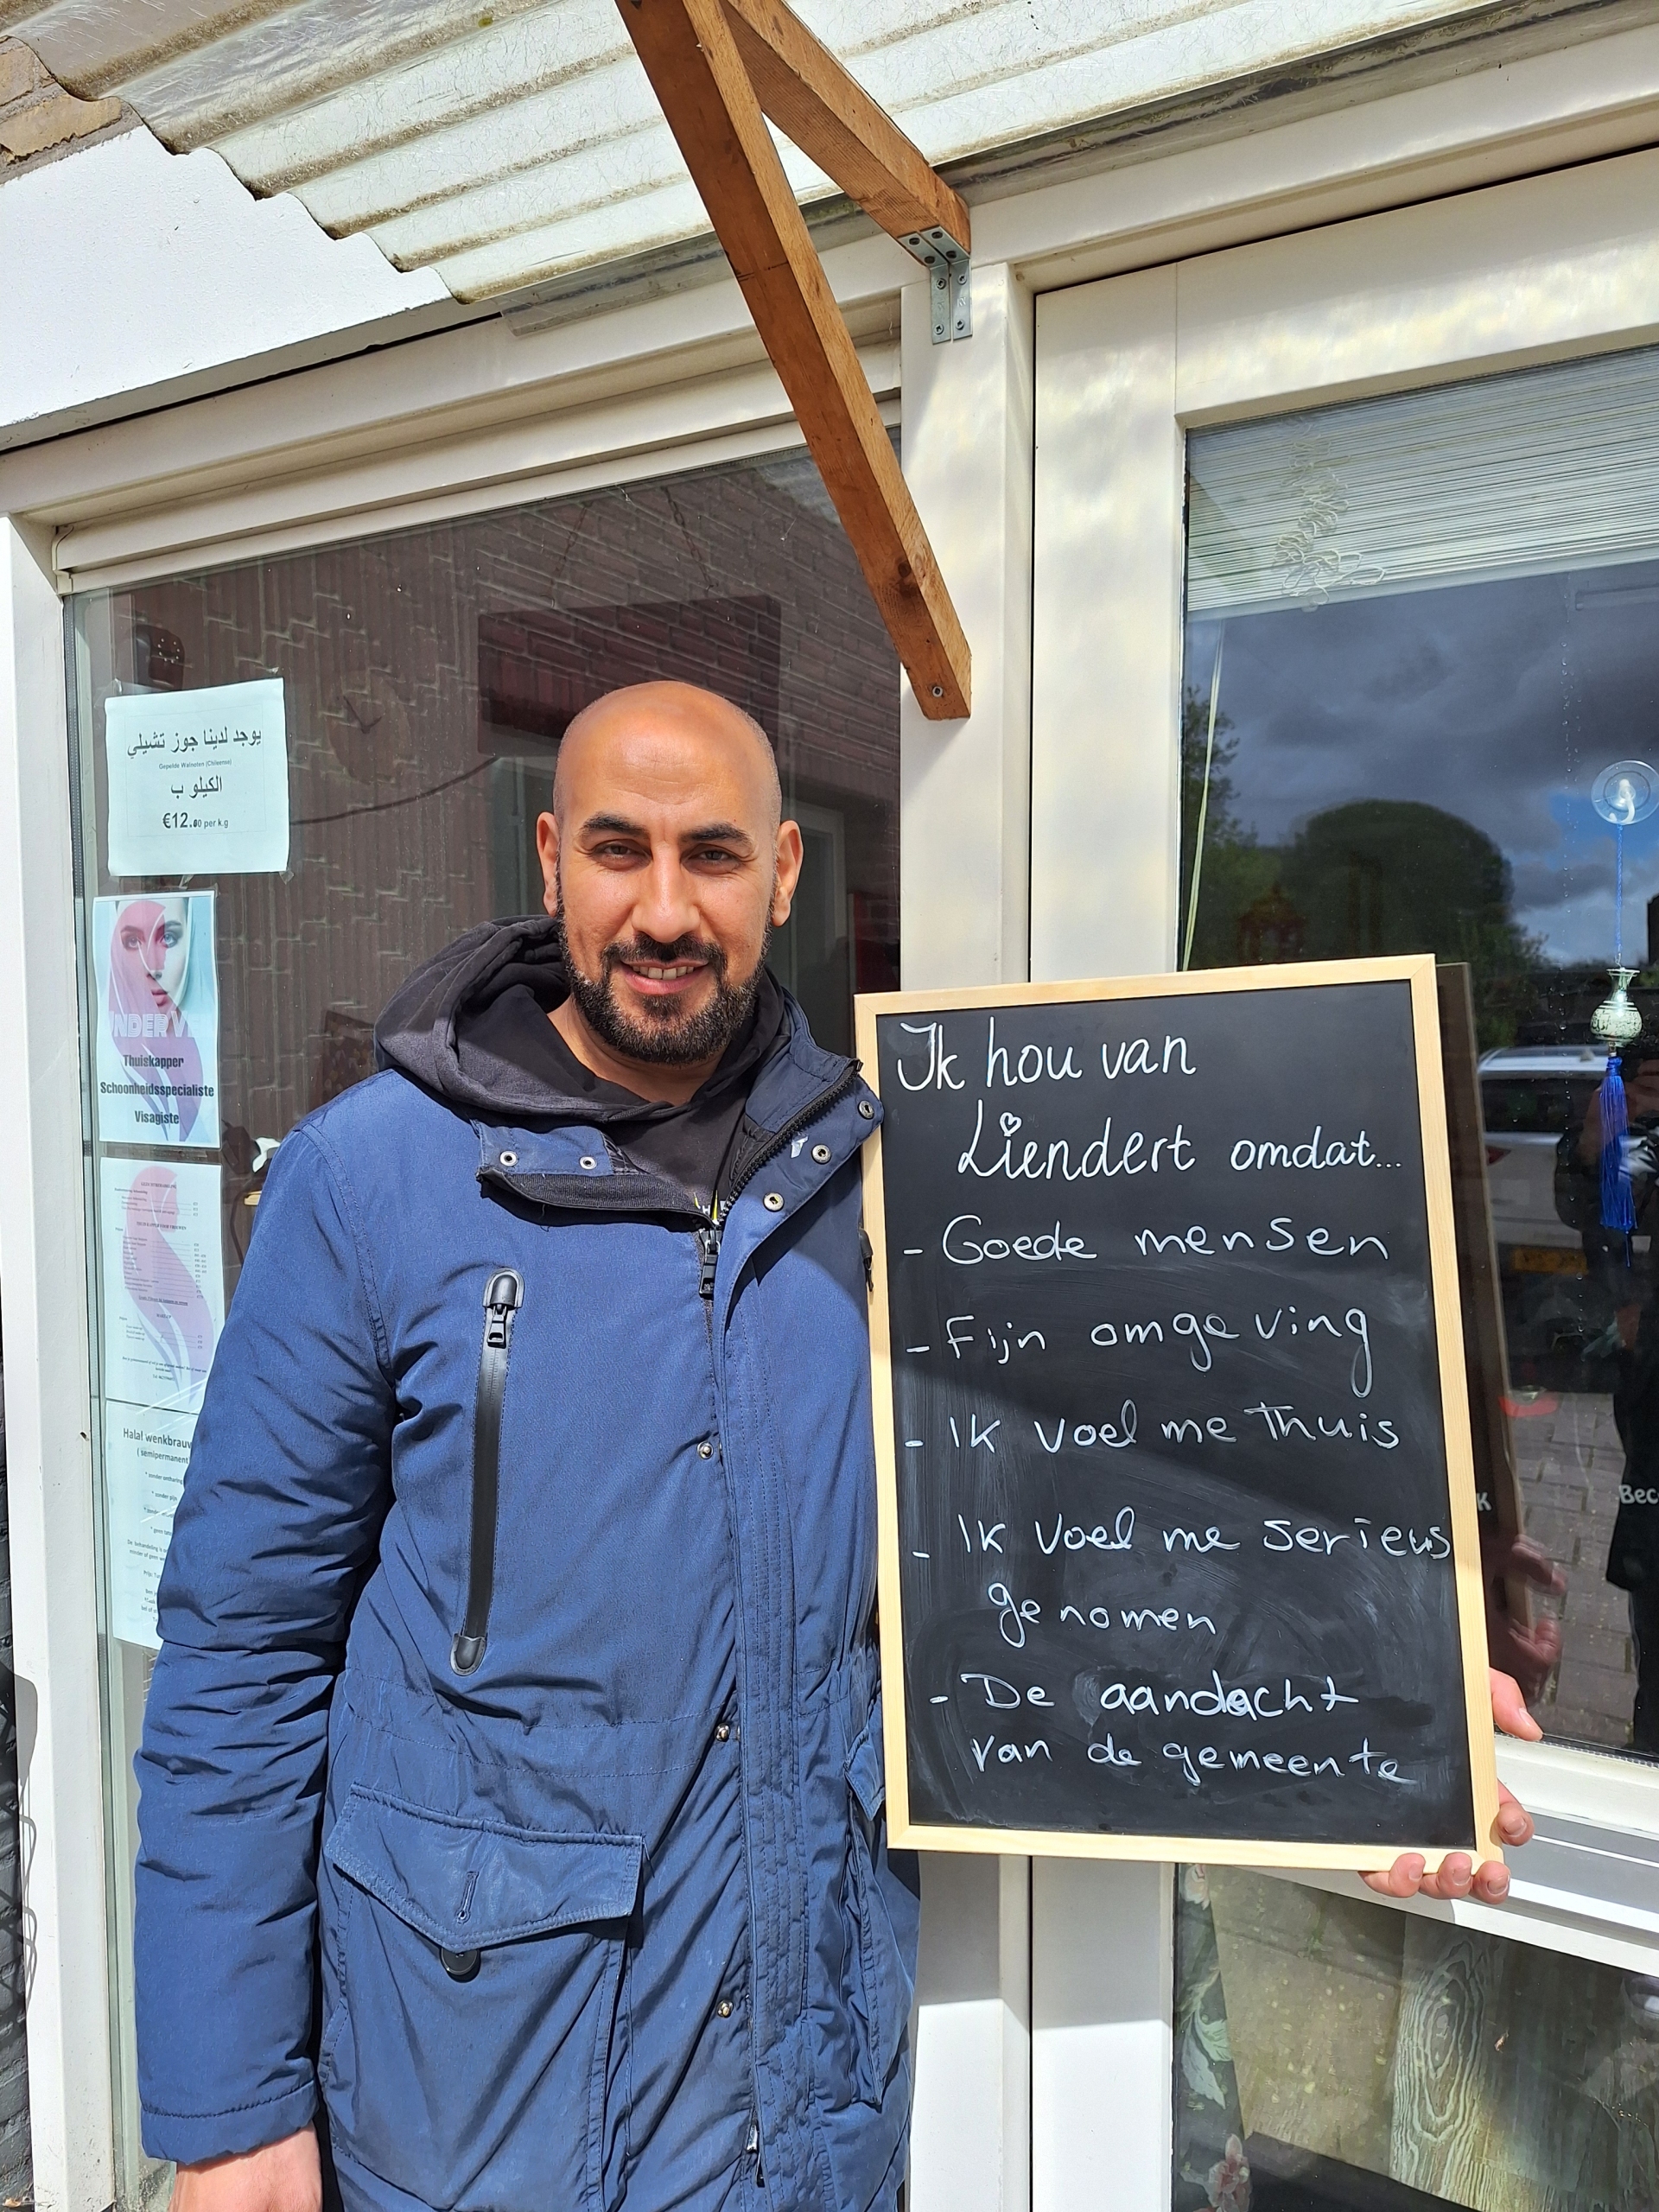 يوجد لدينا جوز تشيلي
Gepelde Walnoten (Chileense)
الكيلو ب
€12.00 per k.g
NDER V
Thuiskapper
Schoonheidsspecialiste
Visagiste
Halal wenkbrauw
( semipermanent
Ik hou van
Liendert omdat...
- Goede mensen
- Fijn omgeving
- Ik voel me Thuis
- Ik voel me serieus
genomen
- De aandacht
van de gemeente
K
Bec